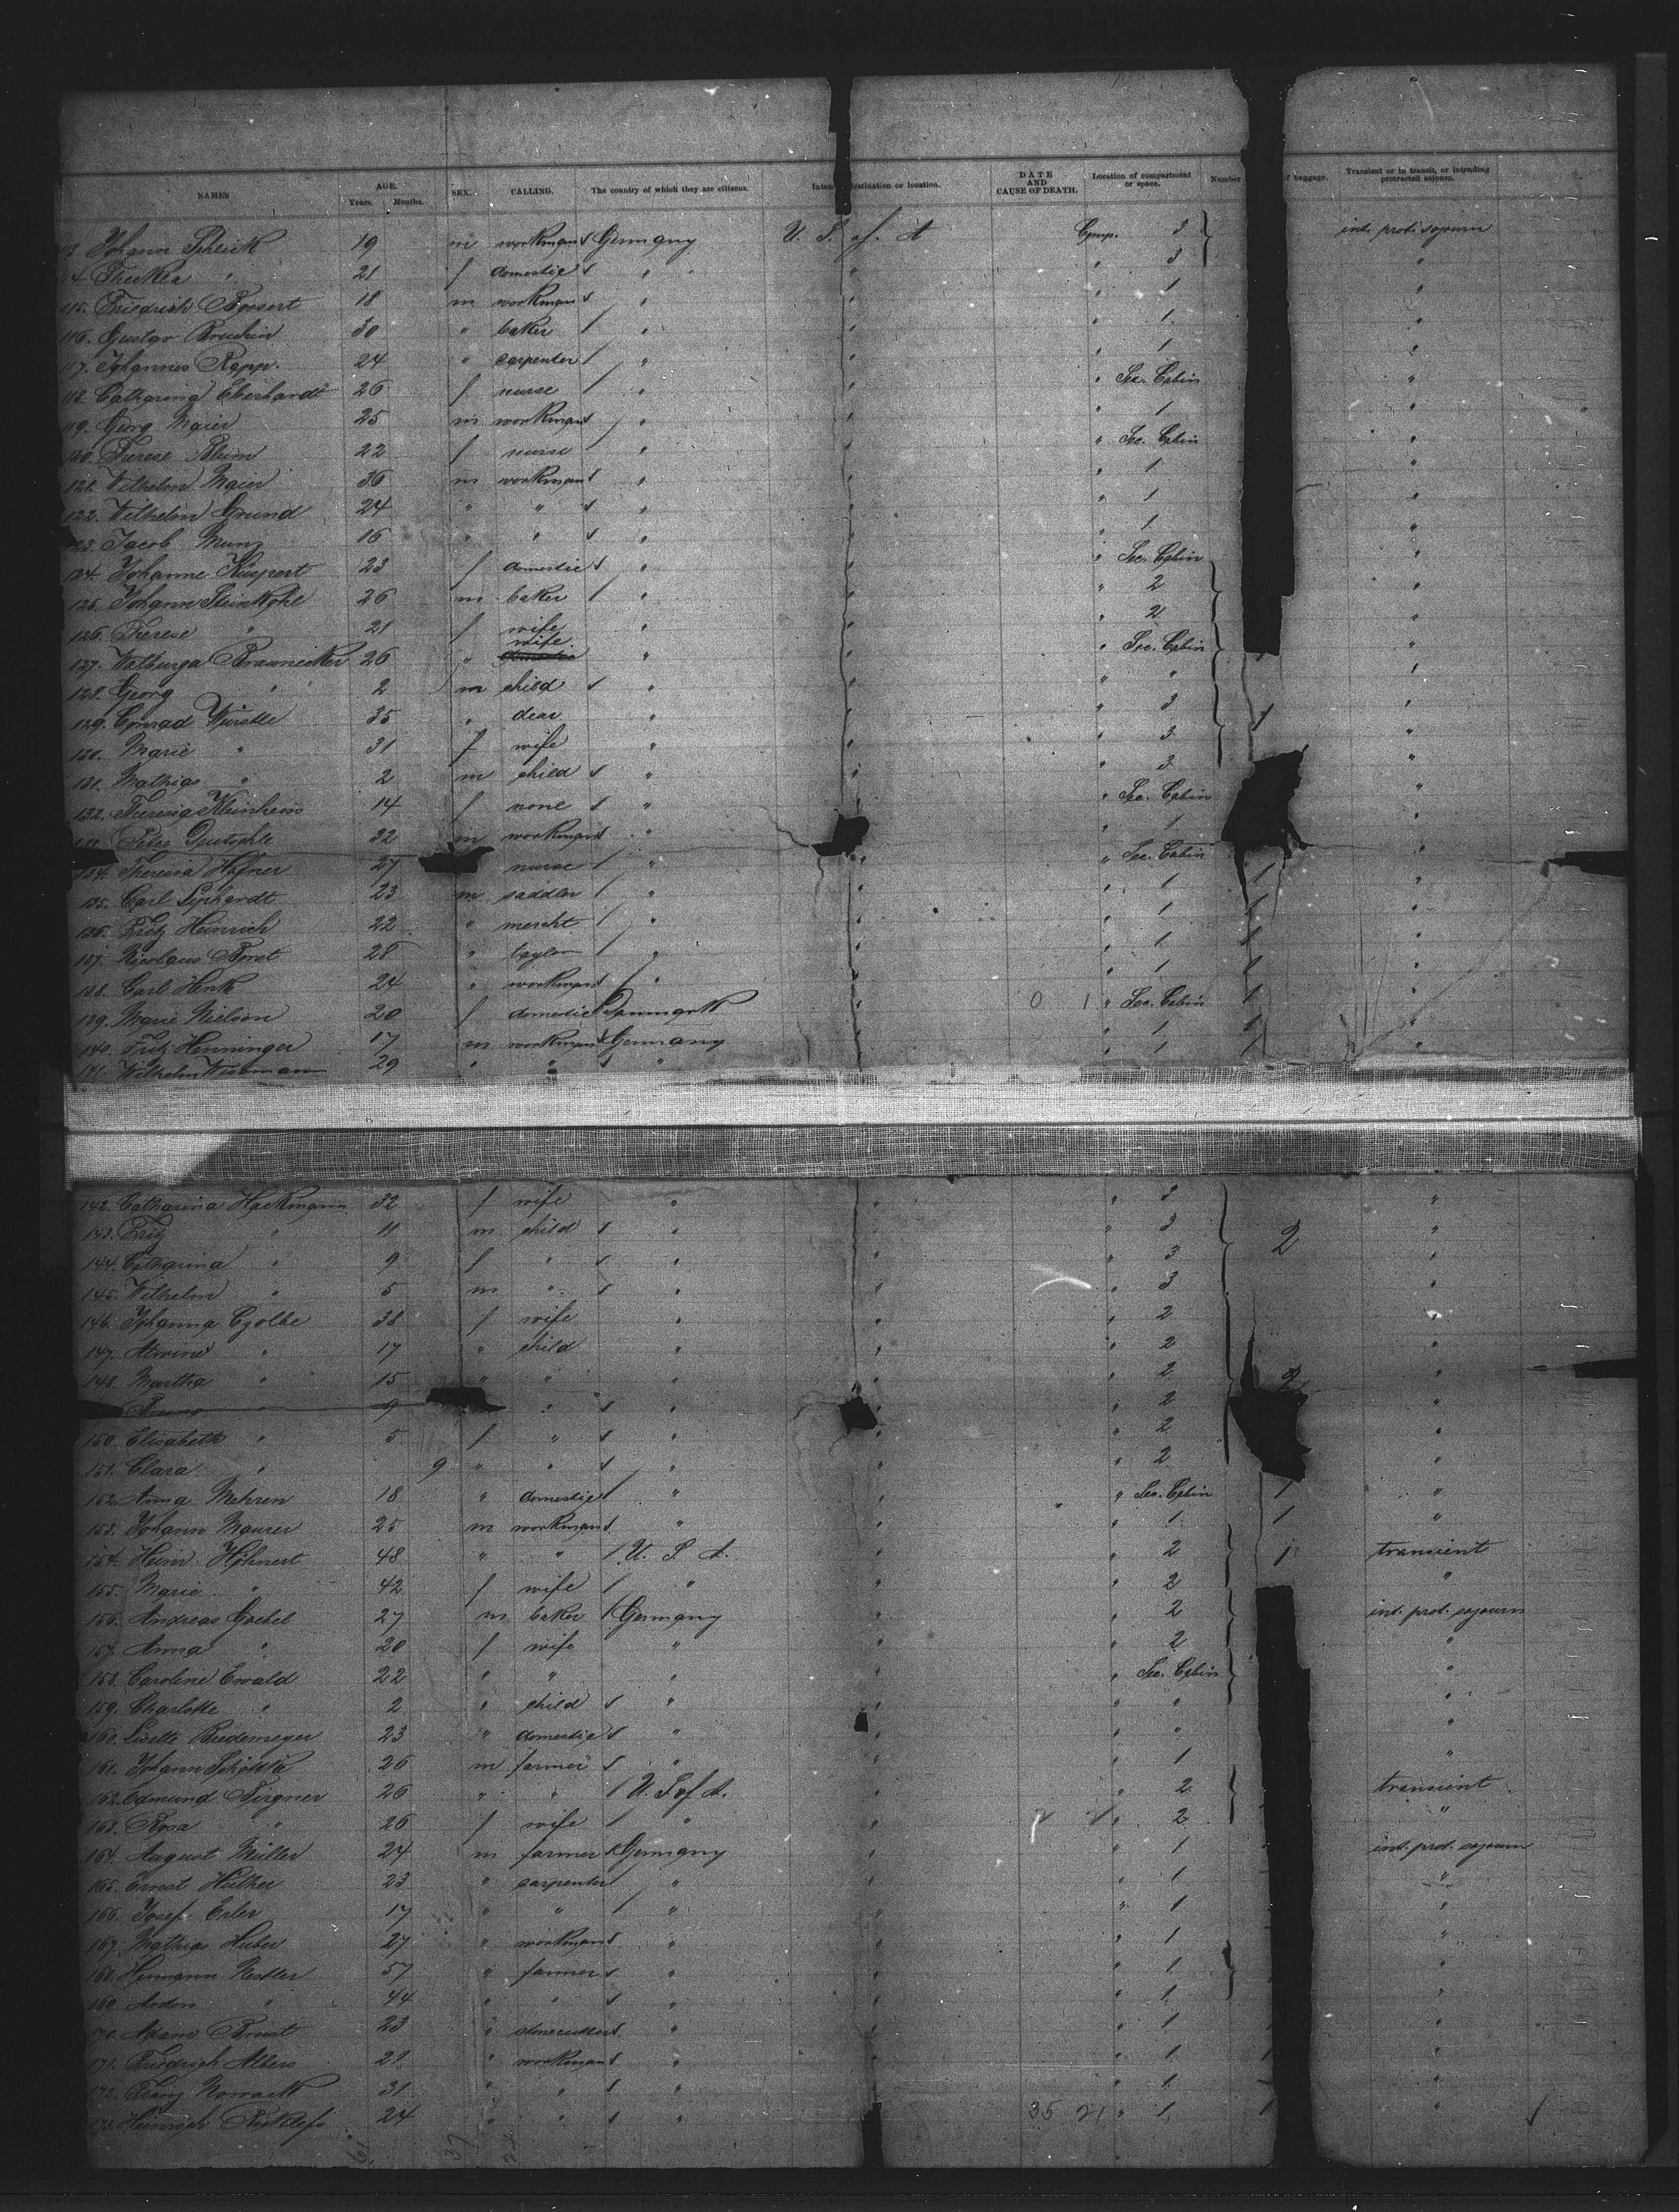 NAMES AGE. Years. Months. SEX. CALLING. The country of which they are citizens. destination or location. DATE AND CAUSE OF DEATH. Location of compartment or space. Number of baggage. Transient or in transit, or intending protracted sojourn.
Johann 19 m workman s Germany U. S. of A Comp. 3 int. prot. sojourn
Theckla " 21 f domestic s " " " 3 "
115. Friedrich Bossert 18 m workman s " " " 1 "
116. Gustav 30 " baker / " " " 1 "
117. Johannes Rapp. 24 " carpenter / " " " 1 "
118. Catharina Eberhardt 26 f nurse / " " " Sec. Cabin "
119. Georg Maier 25 m workman s " " " 1 "
120. Therese Blum 22 f nurse / " " " Sec. Cabin "
121. Wilhelm Maier 36 m workman s " " " 1 "
122. Wilhelm Grund 24 " " s " " " 1 "
123. Jacob Munz 16 " " s " " " 1 "
124. Johanne Küspert 23 f domestic s " " " Sec. Cabin "
125. Johann Steinkohl 26 m baker / " " " 2 "
126. Therese " 21 f wife " " " 2 "
127. Walburga Brauneicker 26 " wife " " " Sec. Cabin "
128. Georg " 2 m child s " " " " "
129. Conrad Würstle 35 " " " " 3 1 "
130. Marie " 31 f wife " " " 3 "
131. Mathias " 2 m child s " " " 3 "
132. Theresia Kleinheins 14 f none s " " " Sec. Cabin "
133. Peter Deutschle 32 m workman s " " " 1 "
134. Theresia Hafner 27 nurse / " " " Sec. Cabin 1 "
135. Carl Liphardt 23 m saddler / " " " 1 1 "
136. Fritz Heinrich 22 " mercht / " " " 1 1 "
137. Nicolaus Borst 28 " taylor / " " " 1 1 "
138. Carl Henk 24 " workman s " " " 1 1 "
139. Marie Nielson 20 f domestic s Danmark " 0 1 " Sec. Cabin 1 "
140. Fritz Henninger 17 m workman s Germany " 1 1 "
141. Wilhelm Wissmann 29 " " s "
142. Catharina Hackmann 32 f wife " " " 3 "
143. Fritz " 11 m child s " " 3 2 "
144. Catharina " 9 f " s " " " 3 "
145. Wilhelm " 5 m " s " " " 3 "
146. Johanna Czolbe 38 f wife " " " 2 "
147. Alwine " 17 " child " " " 2 "
148. Martha " 15 " " " " " 2 2 "
Bruno " 9 " s " " " 2 "
150. Elisabeth " 5 f " s " " " 2 "
151. Clara " 9 " " s " " " 2 "
152. Anna Mehren 18 " domestic s " " " Sec. Cabin 1 "
153. Johann Maurer 25 m workman s " " " 1 1 "
154. Heinr. Höhnert 48 " " / U. S. A. " " 2 1 transient
155. Marie " 42 f wife / " " " 2 "
156. Andreas Goebel 27 m baker / Germany " " 2 int. prot. sojourn
157. Anna " 20 f wife " " " 2 "
158. Caroline Ewald 22 " " " " " Sec. Cabin "
159. Charlotte " 2 " child s " " " " "
160. Lisette Bredemeyer 23 " domestic s " " " "
161. Johann 26 m farmer s " " 1 "
162. Edmund Firgner 26 " " / U. S. of A. " " 2 transient
163. Rosa " 26 f wife / " " " 2 "
164. August Müller 24 m farmer s Germany " " 1 int. prot. sojourn
165. Ernst Hüther 23 " carpenter " " " 1 "
166. Josef Erler 17 " " / " " " 1 "
167. Mathias Huber 27 " workman s " " " 1 "
168. Hermann Nestler 57 " farmer s " " " 1 "
169. " 44 " " s " " " 1 "
170. Adam Brust 23 " stonecutter s " " " 1 "
171. Friedrich Albers 21 " workman s " " " 1 1 "
172. Franz Nowack 31 " " s " " " 1 "
173. Heinrich 24 " " s " 35 21 " 1 1 "